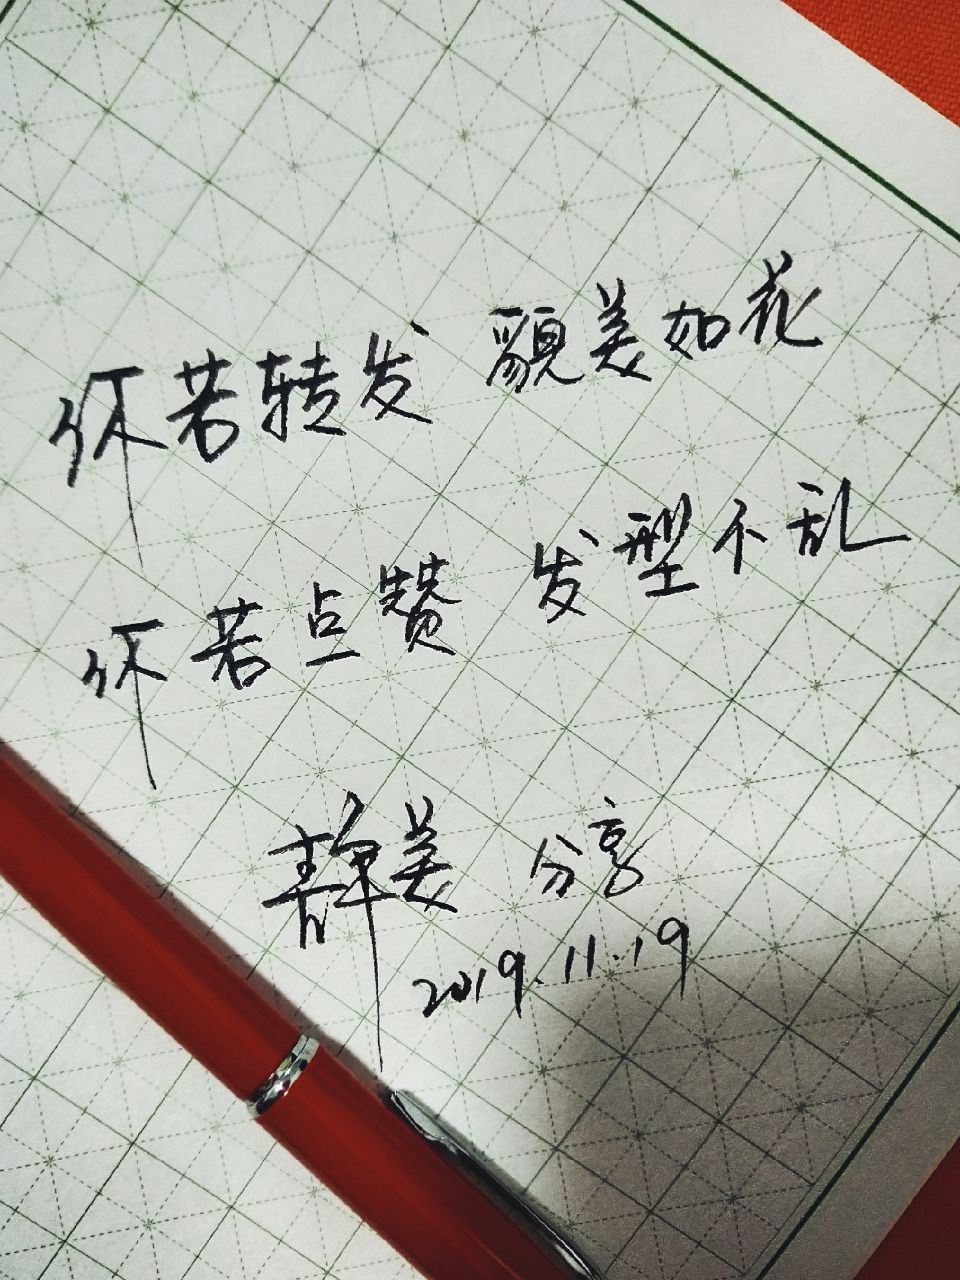 你若转发 貌美如花
你若点赞 发型不乱
静美 分享
2019.11.19